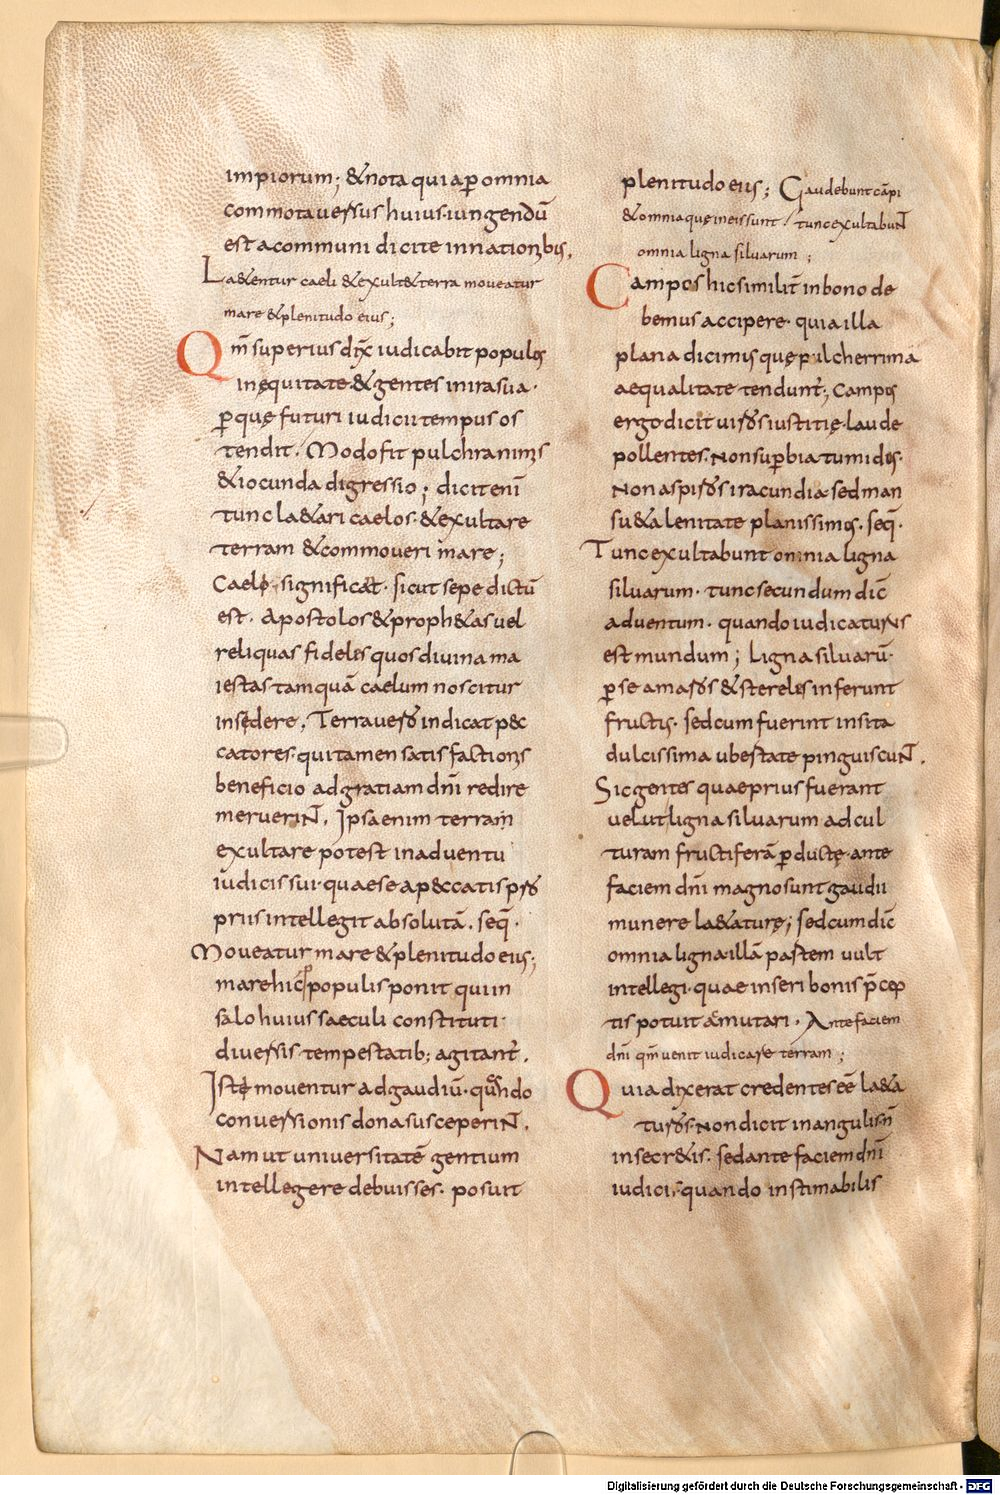 impiorum; &nota quia ꝑ omnia
commota uersus huius iungendū
est a communi dicite in nationibus.
La&entur caeli & exult& terra moueatur
mare & plenitudo eius;
Qm̄ superius dixit iudicabit populos
in ęquitate & gentes in ira sua·
ꝑ quę futuri iudicii tempus os
tendit. Modo fit pulchra nimis
& iocunda digressio; dicit enī
tunc la&ari caelos & exultare
terram & commoueri mare;
Caelo significat· sicut sepe dictū
est· apostolos & proph&as uel
reliquas fideles quos diuina ma
iestas tamquā caelum noscitur
insedere. Terra uero indicat pec
catores· qui tamen satisfactionis
beneficio ad gratiam dn̄i redire
meruerint. Ipsa enim terram
exultare potest in aduentu
iudicis sui· quae se a peccatis
prius intellegit absolutā. seq̄·
Moueatur mare & plenitudo eius;
mare hic populis ponit qui in
salo huius saeculi constituti·
diuersis tempestatib; agitant̄.
Iste mouentur ad gaudiū· quando
conuersionis dona susceperint.
Nam ut uniuersitatē gentium
intellegere debuisses· posuit
plenitudo eius; Gaudebunt cāpi
& omnia quę in eis sunt / tunc exultabunt
omnia ligna siluarum;
Campos hic similit̄ in bono de
bemus accipere· quia illa
plana dicimis quę pulcherrima
aequalitate tendunt̄; Campos
ergo dicit uiros iustitię laude
pollentes. Non supbia tumidos·
Non asperos iracundia sed man
su&a lenitate planissimos. seq̄·
Tunc exultabunt omnia ligna
siluarum· tunc secundum dic̄
aduentum· quando iudicaturus
est mundum; Ligna siluarū·
ꝑ se amaros & stereles inferunt
fructus· sed cum fuerint insita
dulcissima ubestate pinguiscunt.
Sic gentes quae prius fuerant
uelut ligna siluarum ad cul
turam fructiferā ꝑductę ante
faciem dn̄i magno sunt gaudii
munere la&aturę; sed cum dic̄
omnia ligna illā pastem uult
intellegi· quae inseri bonis p̄cep
tis potuit & mutari. Ante faciem
dn̄i qm̄ uenit iudicare terram;
Quia dixerat credentes eē la&a
turos· Non dicit in angulis· n̄
in secr&is· sed ante faciem dn̄i
iudicis· quando instimabilis
Digitalisierung gefördert durch die Deutsche Forschungsgemeinschaft - DFG